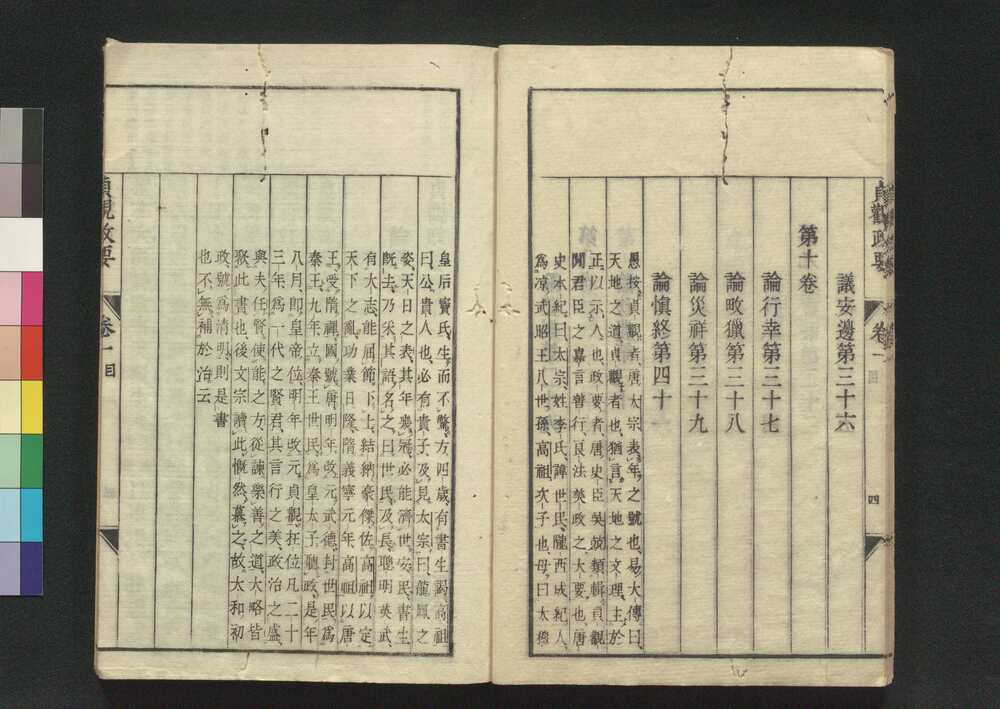 貞觀政要
卷一
四
議安邊第三十六
第十卷
論行幸第三十七
論畋獵第三十八
論災祥第三十九
論愼終第四十
愚按、貞觀者唐太宗表年之號也、易大傳曰、
天地之道、貞觀者也、猶言天地之文理、主於
正、以示人也、政要者唐史臣吳兢類輯貞觀
聞君臣之嘉言善行良法美政之大要也、唐
史本紀曰、太宗姓李氏、諱世民、隴西成紀人、
爲凉武昭王八世孫、高祖次子也、母曰太穆
皇后竇氏、生而不驚、方四歲、有書生謁高祖
曰、公貴人也、必有貴子、及見太宗、曰、龍鳳之
姿、天日之表、其年幾冠、必能濟世安民、書生
旣去、乃采其語、名之曰世民、及長、聰明英武、
有大志、能屈節下士、結納豪傑、佐高祖以定
天下之亂、功業日隆、隋義寧元年、高祖以唐
王受隋禪、國號唐、明年改元武德、封世民爲
秦王、九年、立秦王世民爲皇太子聽政、是年
八月、卽皇帝位、明年改元貞觀、在位凡二十
三年、爲一代之賢君、其言行之美、政治之盛
與夫任賢使能之方、從諫樂善之道、大略皆
聚此書也、後文宗讀此、慨然慕之、故太和初
政、號爲淸明、則是書
也不無補於治云
貞觀政要
卷一目